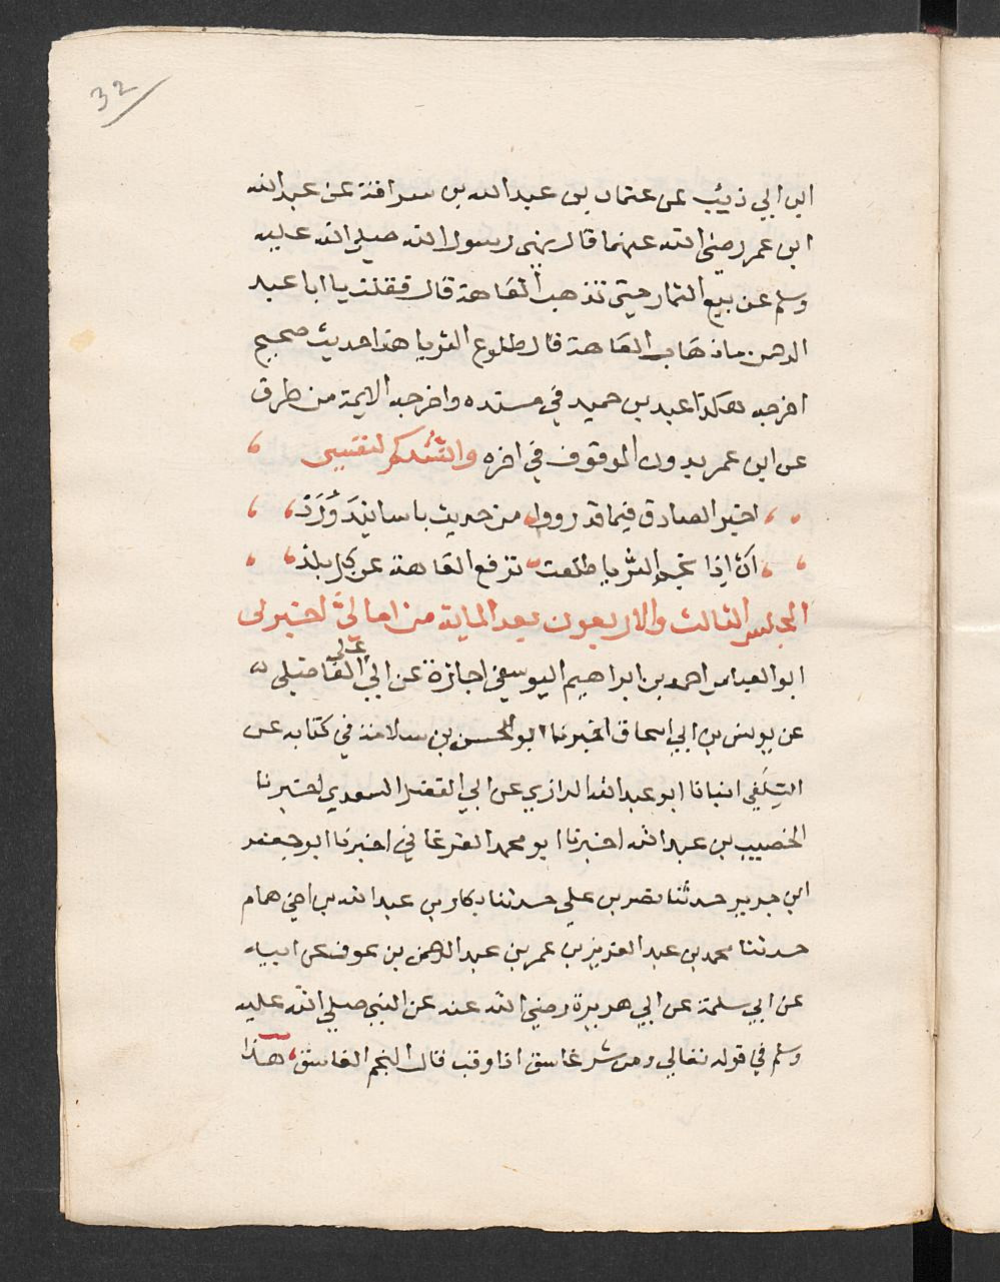 32
ابن ابي ذيب عن عثمان بن عبد الله بن سراقة عن عبد الله
ابن عمر رضي الله عنهما قال نهى رسول الله صلى الله عليه
وسلم عن بيع الثمار حتى تذهب العاهة قال فقلت يا ابا عبد
الرحمن ما ذهاب العاهة قال طلوع الثريا هذا حديث صحيح
اخرجه هكذا عبد بن حميد في مسنده واخرجه الايمة من طرق
عن ابن عمر بدون الموقوف في اخره
اخبر الصادق فيما قد رووا من حديث باسانيد ورد
ان اذا نجم الثريا طلعت ترفع العاهة عن كل بلد
المجلس الثالث والاربعون بعد الماية من امالي اخبرني
ابو العباس احمد بن ابراهيم اليوسفي اجازة عن ابي علي الفاضلي
عن يونس بن ابي اسحاق اخبرنا ابو الحسن بن سلامة في كتابه عن
السلفي انبانا ابو عبد الله الرازي عن ابي الفضل السعدي اخبرنا
الخصيب بن عبد الله اخبرنا ابو محمد الفرغاني اخبرنا ابو جعفر
ابن جرير حدثنا نصر بن علي حدثنا بكار بن عبد الله بن اخي همام
حدثنا محمد بن عبد العزيز بن عمر بن عبد الرحمن بن عوف عن ابيه
عن ابي سلمة عن ابي هريرة رضي الله عنه عن النبي صلى الله عليه
وسلم في قوله تعالى ومن شر غاسق اذا وقب قال النجم الغاسق هذا